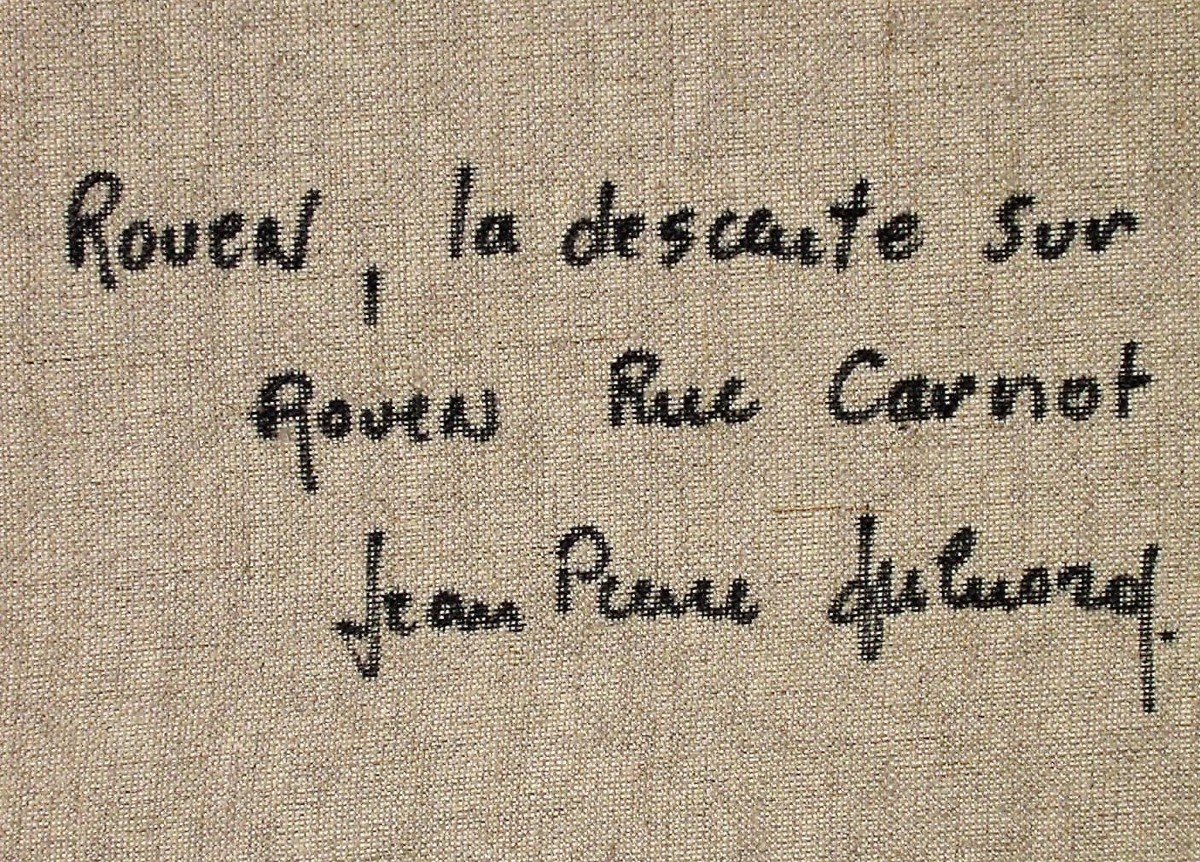 Rouen, la descente sur
Rouen Rue Carnot
Jean Pierre